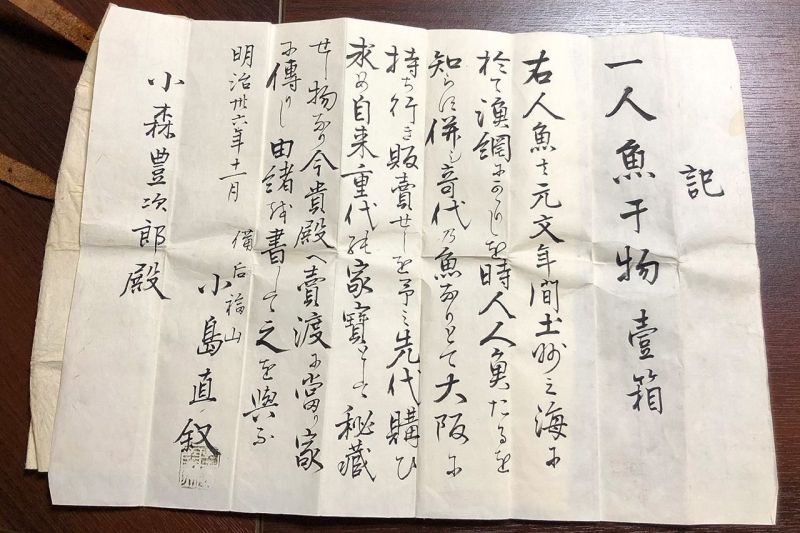 記
一人魚干物壹箱
右人魚は元文年間土州之海に
於て漁網にかゝりしを時人人魚たるを
知らす併も奇代乃魚なりとて大阪に
持ち行き販賣せしを予之先代購ひ
求め自来重代の家寶として秘藏
せし物なり今貴殿へ賣渡に當り家
に傳りし由緒を書して之を與ふ
明治卅六年十一月 備后福山
小島直叙
小森豊次郎殿